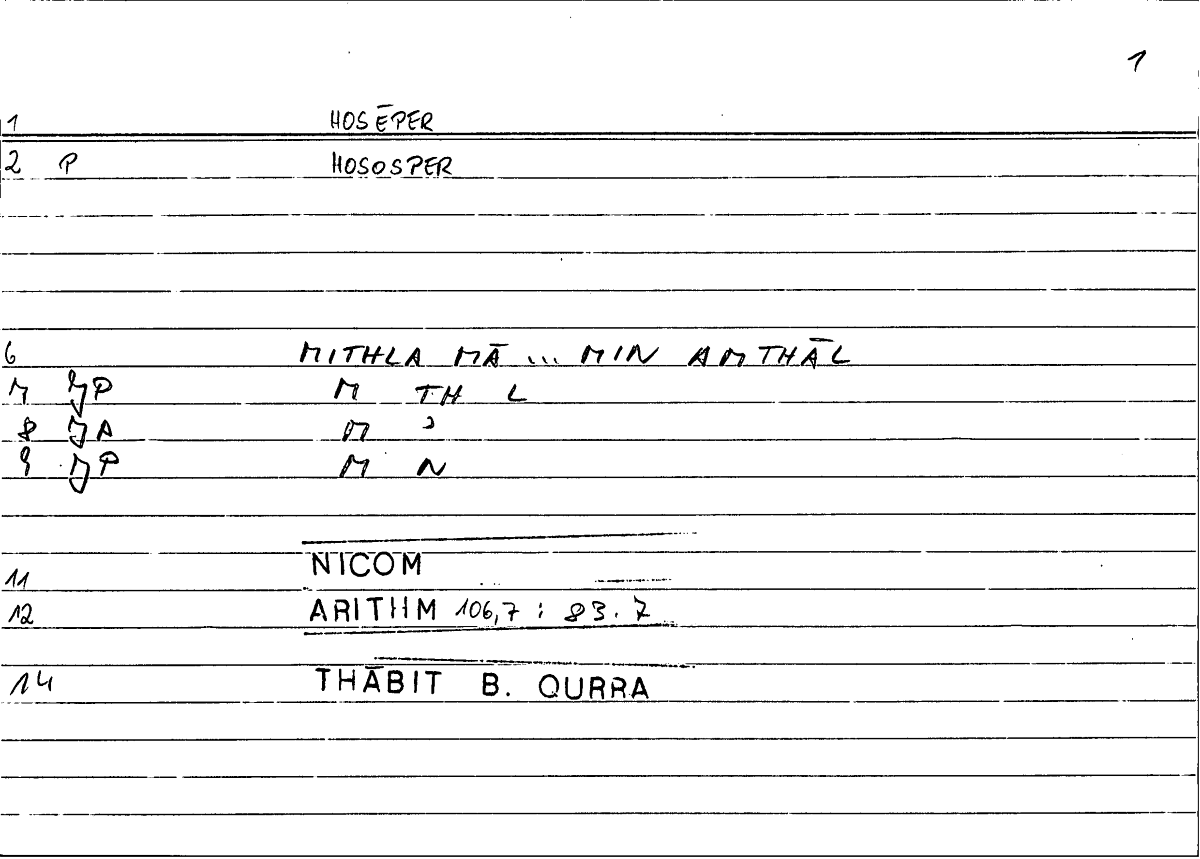 1
1 HOSĒPER
2 P HOSOSPER
6 MITHLA MĀ ... MIN AMTHĀL
M TH L
8 M ʾ
9 M N
11 NICOM
12 ARITHM 106,7 : 83.7
14 THĀBIT B. QURRA